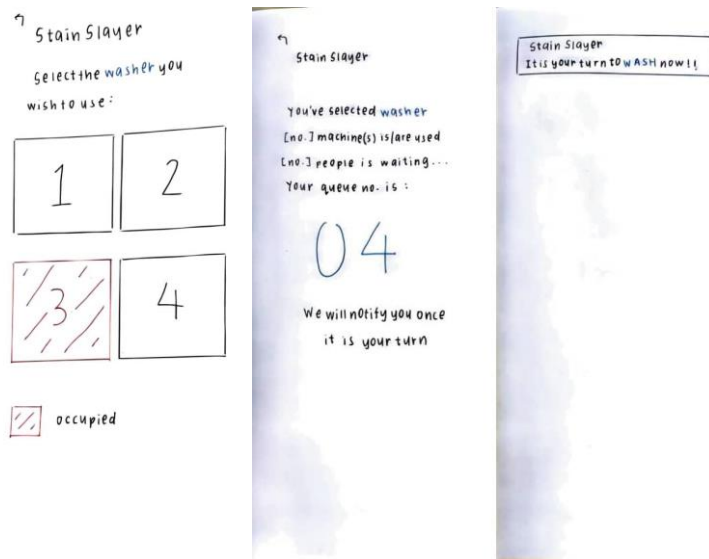 Stain Slayer
Select the washer you
wish to use:
1
2
3
4
occupied
Stain Slayer
You've selected washer
[no.] machine(s) is/are used
[no.] people is waiting...
Your queue no. is :
04
We will notify you once
it is your turn
Stain Slayer
It is your turn to WASH now!!